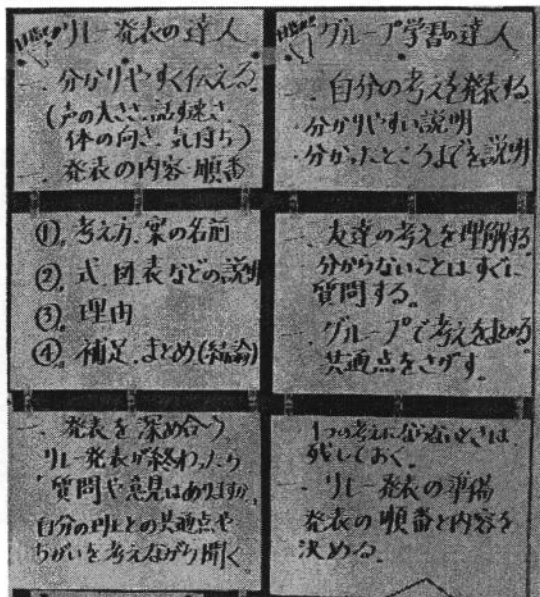 目指せ!! リレー発表の達人
一、分かりやすく伝える。
(声の大きさ、話す速さ、
体の向き、気持ち)
一、発表の内容・順番
①、考え方、案の名前
②、式、図、表などの説明
③、理由
④、補足、まとめ(結論)
一、発表を深め合う。
リレー発表が終わったら
質問や意見はありますか。
自分の
との共通点や
ちがいを考えながら聞く。
目指せ!! グループ学習の達人
一、自分の考えを発表する
・分かりやすい説明
・分かったところまでを説明
一、友達の考えを理解する。
分からないことはすぐに
質問する。
一、グループで考えをまとめる。
共通点をさがす。
1つの考えにならないときは
残しておく。
一、リレー発表の準備
発表の順番と内容を
決める。